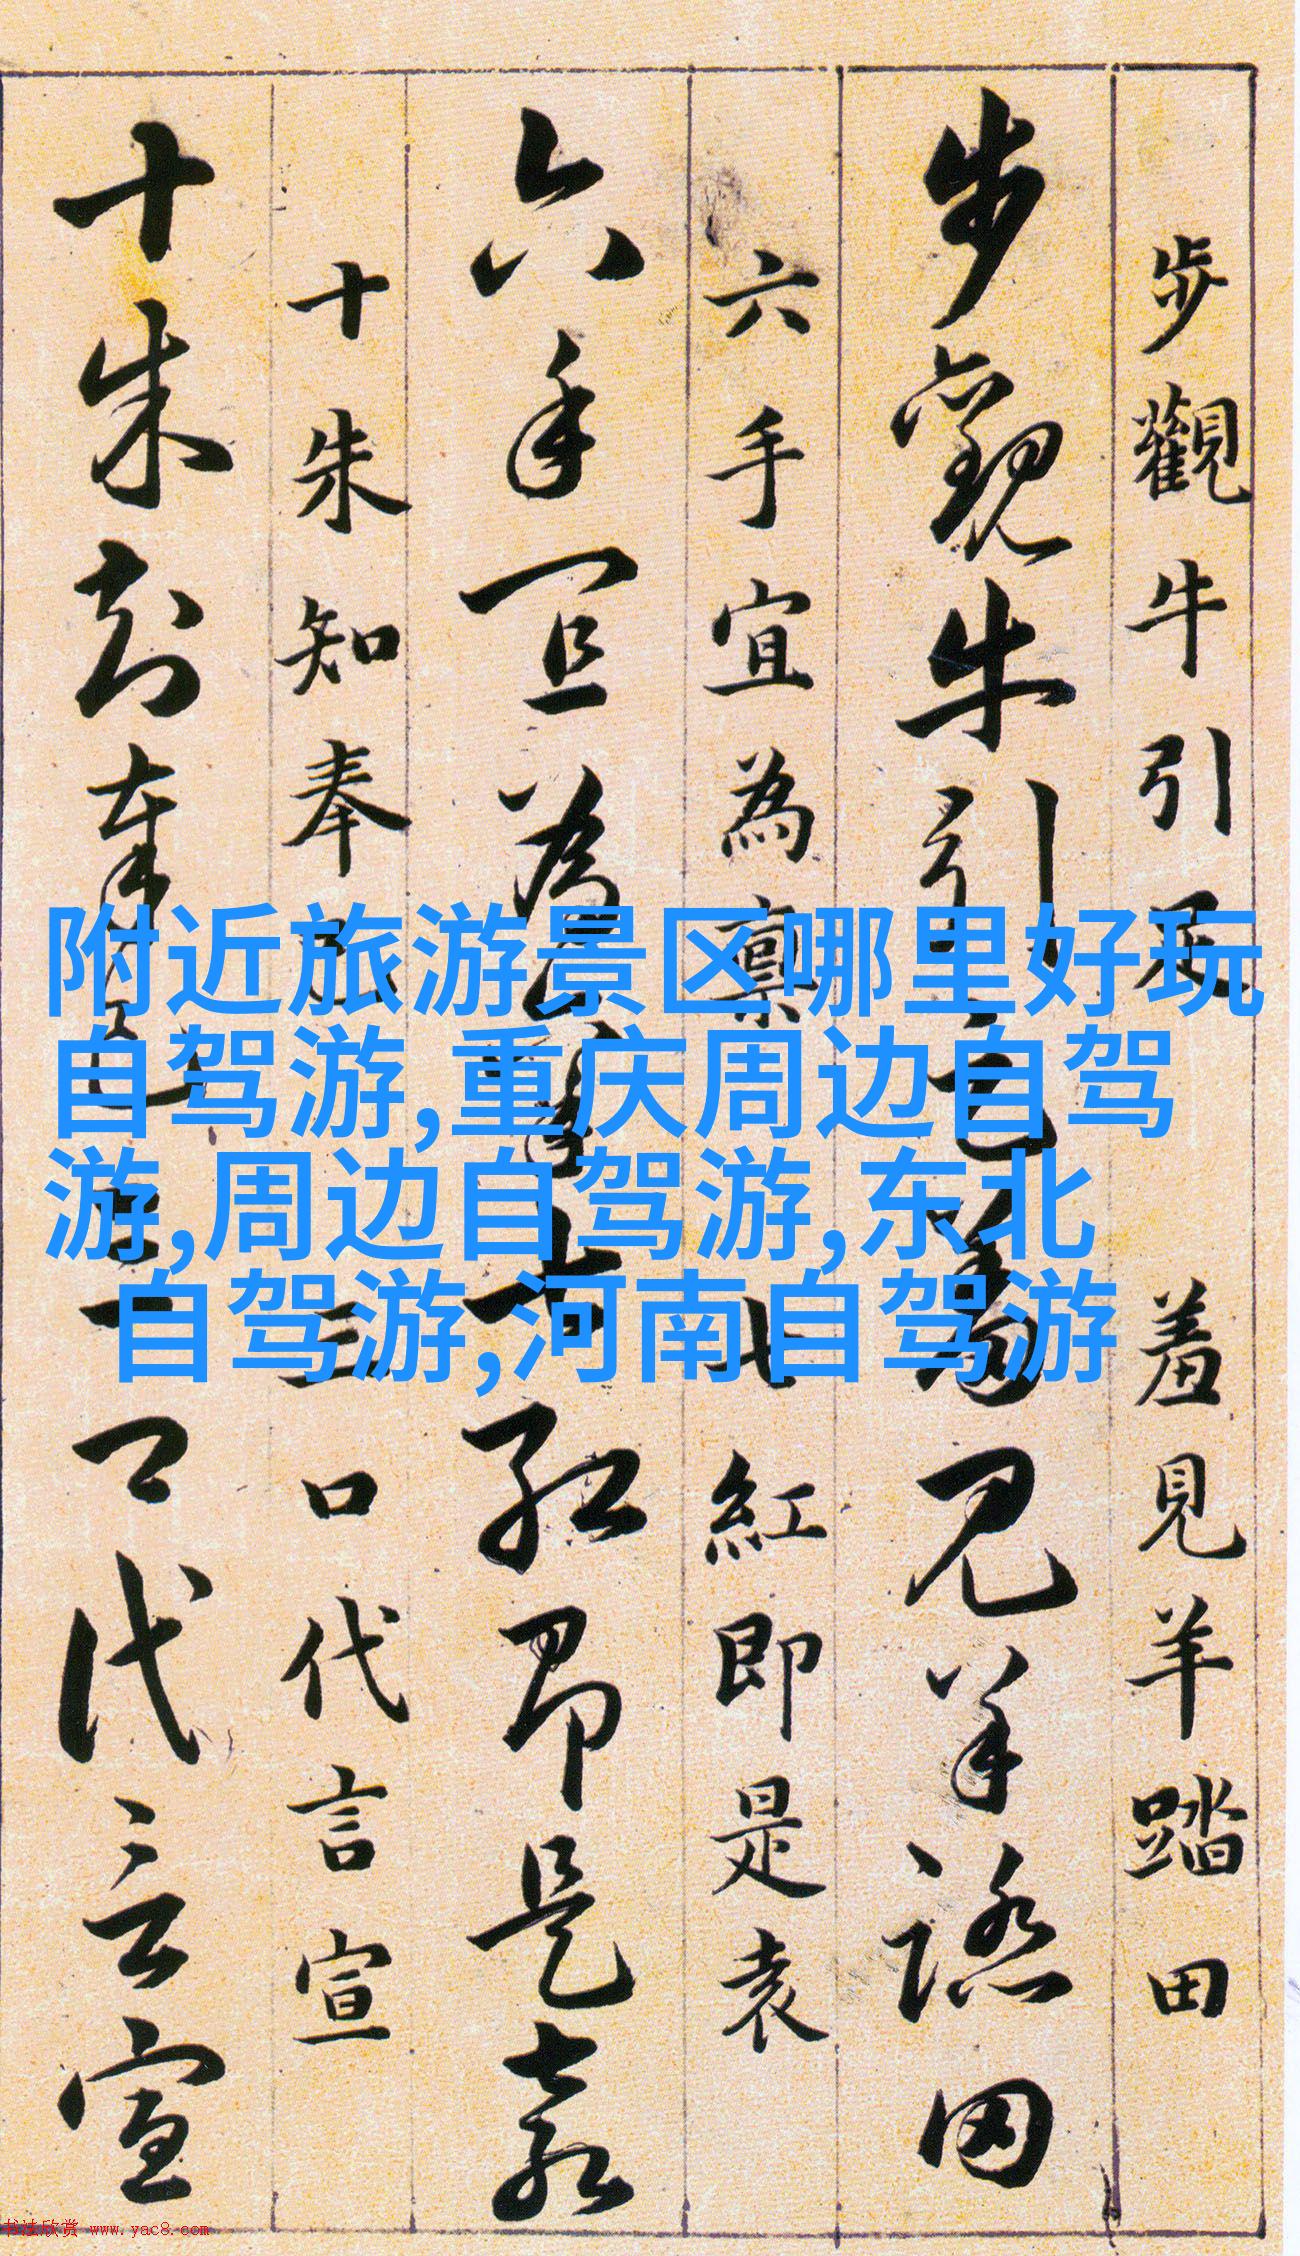 步觀牛引 羞見羊踏田
步觀牛引 羞見羊踏田
六手宜為稟 七紅即是袁
六手宜為 七紅即是袁
十朱知奉 三口代言宣
十朱知奉 三口代言宣
附近旅游景区哪里好玩
自驾游,重庆周边自驾
游,周边自驾游,东北
自驾游,河南自驾游
书法欣赏 www.yac8.com